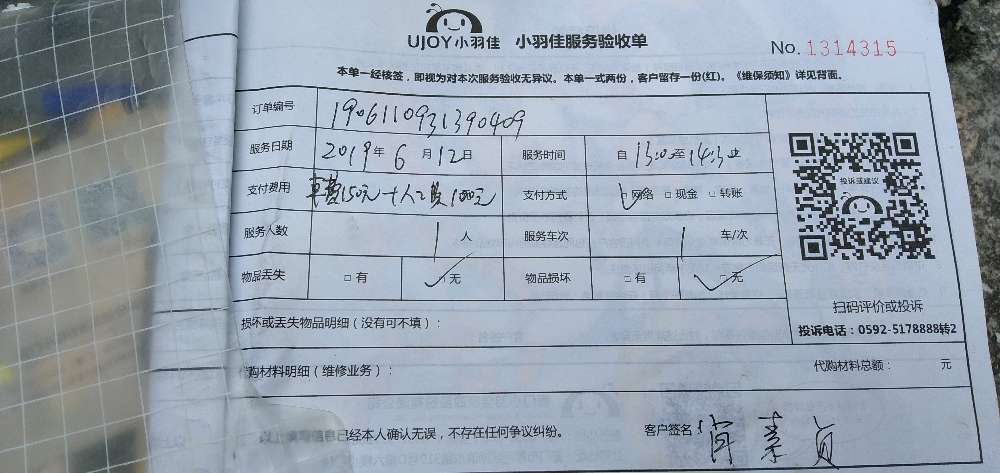 UJOY小羽佳 小羽佳服务验收单 No. 1314315
本单一经核签，即视为对本次服务验收无异议。本单一式两份，客户留存一份(红)。《维保须知》详见背面。
订单编号 1906110931390409
服务日期 2019年6月12日 服务时间 自13:00至14:30止
支付费用 车费150元+人工费100元 支付方式 □网络 □现金 □转账
服务人数 1人 服务车次 1车/次
物品丢失 □有 □无 物品损坏 □有 □无
投诉或建议
扫码评价或投诉
投诉电话：0592-5178888转2
损坏或丢失物品明细（没有可不填）：
购材料明细（维修业务）： 代购材料总额： 元
信息已经本人确认无误，不存在任何争议纠纷。 客户签名：肖素贞